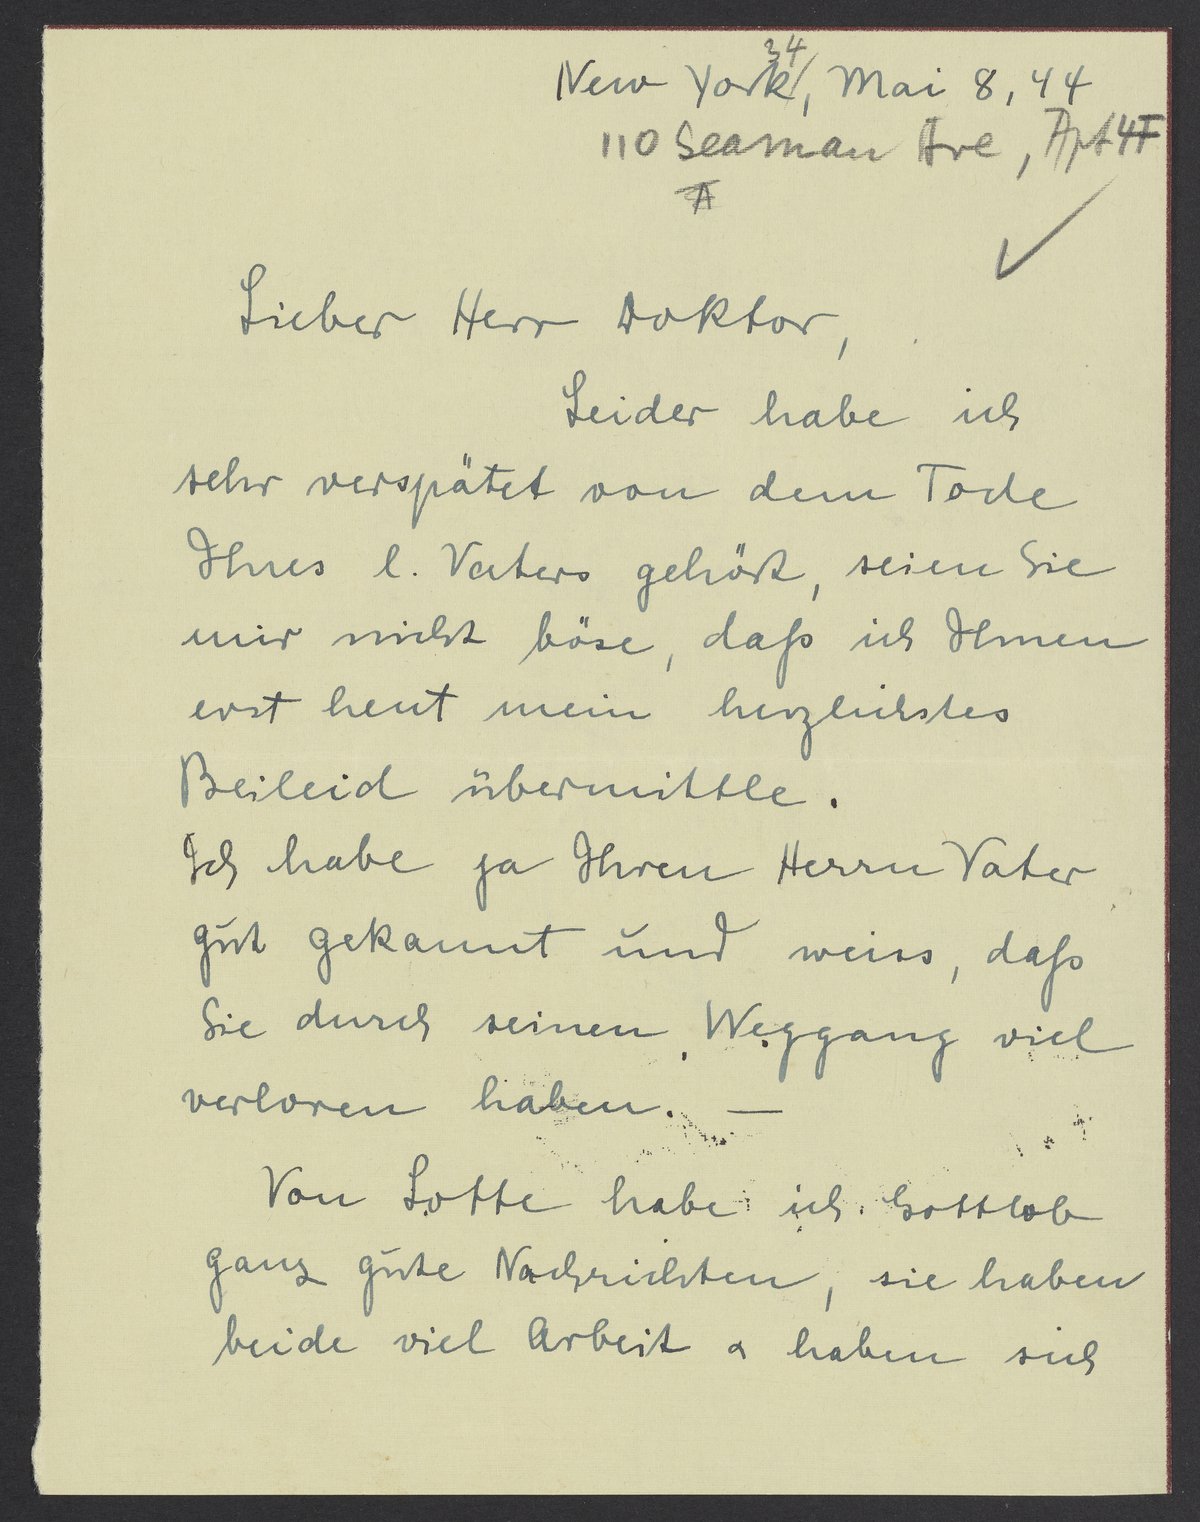 New York 34, Mai 8, 44
110 Seaman Ave, Apt 4F
A
Lieber Herr Doktor,
Leider habe ich
sehr verspätet von dem Tode
Ihres l. Vaters gehört, seien Sie
mir nicht böse, daß ich Ihnen
erst heut mein herzlichstes
Beileid übermittle.
Ich habe ja Ihren Herrn Vater
gut gekannt und weiss, daß
Sie durch seinen Weggang viel
verloren haben. —
Von Lotte habe ich Gottlob
ganz gute Nachrichten, sie haben
beide viel Arbeit & haben sich